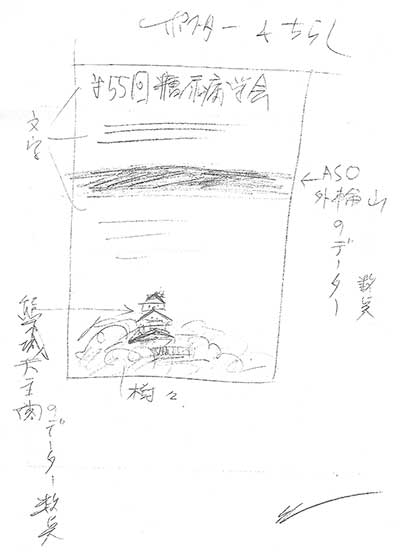 ポスター & ちらし
第55回糖尿病学会
文字
ASO
外輪山
のデーター
数点
熊本城
天主閣
のデーター数点
樹々